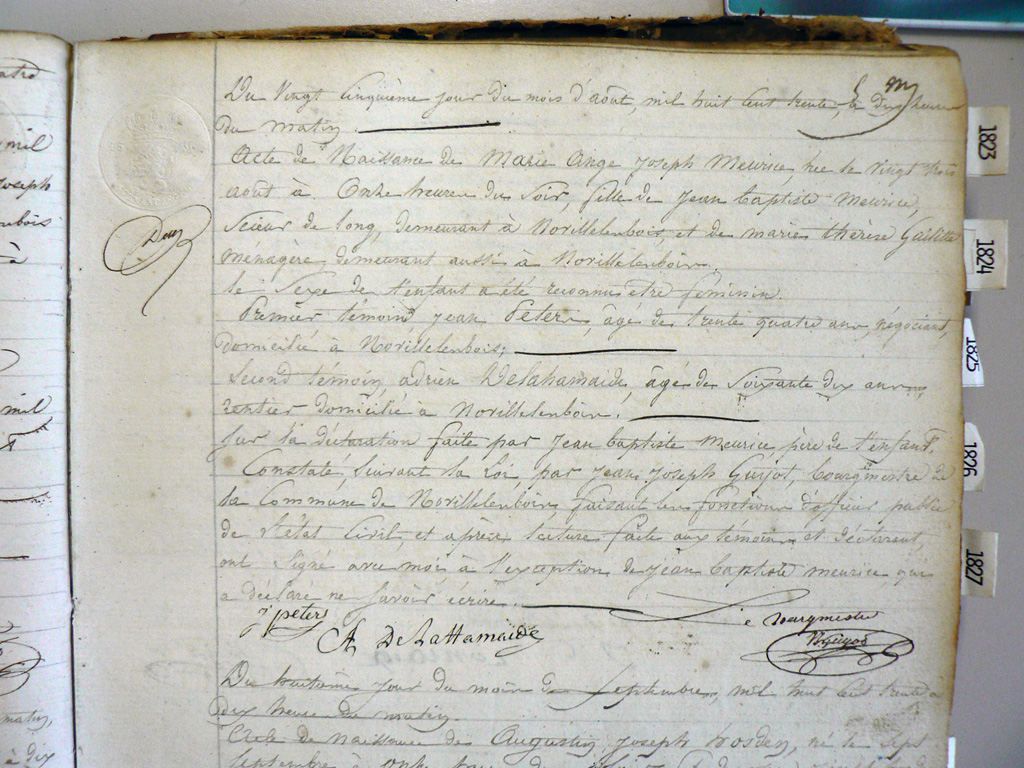 Du Vingt Cinquième jour du mois d'août, mil huit cent trente, à dix heures
du matin.
Acte de Naissance de Marie Ange Joseph Meurice, née le vingt trois
août à Onze heures du Soir, fille de Jean baptiste Meurice,
Scieur de long, demeurant à Novillelenbois, et de marie thérèse
ménagère, demeurant aussi à Novillelenbois,
le Sexe de l'enfant a été reconnu etre féminin.
Premier témoin, Jean Peters, âgé de trente quatre ans, négociant,
domicilié à Novillelenbois;
Second témoin adrien Delahamaide, âgé de Soixante dix ans,
rentier domicilié à Novillelenbois.
Sur la déclaration faite par Jean baptiste Meurice, père de l'enfant.
Constaté, Suivant la Loi, par Jean Joseph Guyot, bourgmestre de
la Commune de Novillelenbois faisant les fonctions d'officier public
de l'état Civil, et après lecture faite aux témoins et déclarant,
ont Signé avec moi à l'exception de Jean baptiste meurice, qui
a déclaré ne Savoir écrire.
j peters
A DeLaHamaide
Le bourgmestre
Guyot
Du huitième jour du mois de Septembre, mil huit Cent trente à
dix heures du matin.
Acte de naissance de Augustin Joseph, né le Sept
Septembre à onze
mil
Joseph
matin,
à dix
1823
1824
1825
1826
1827